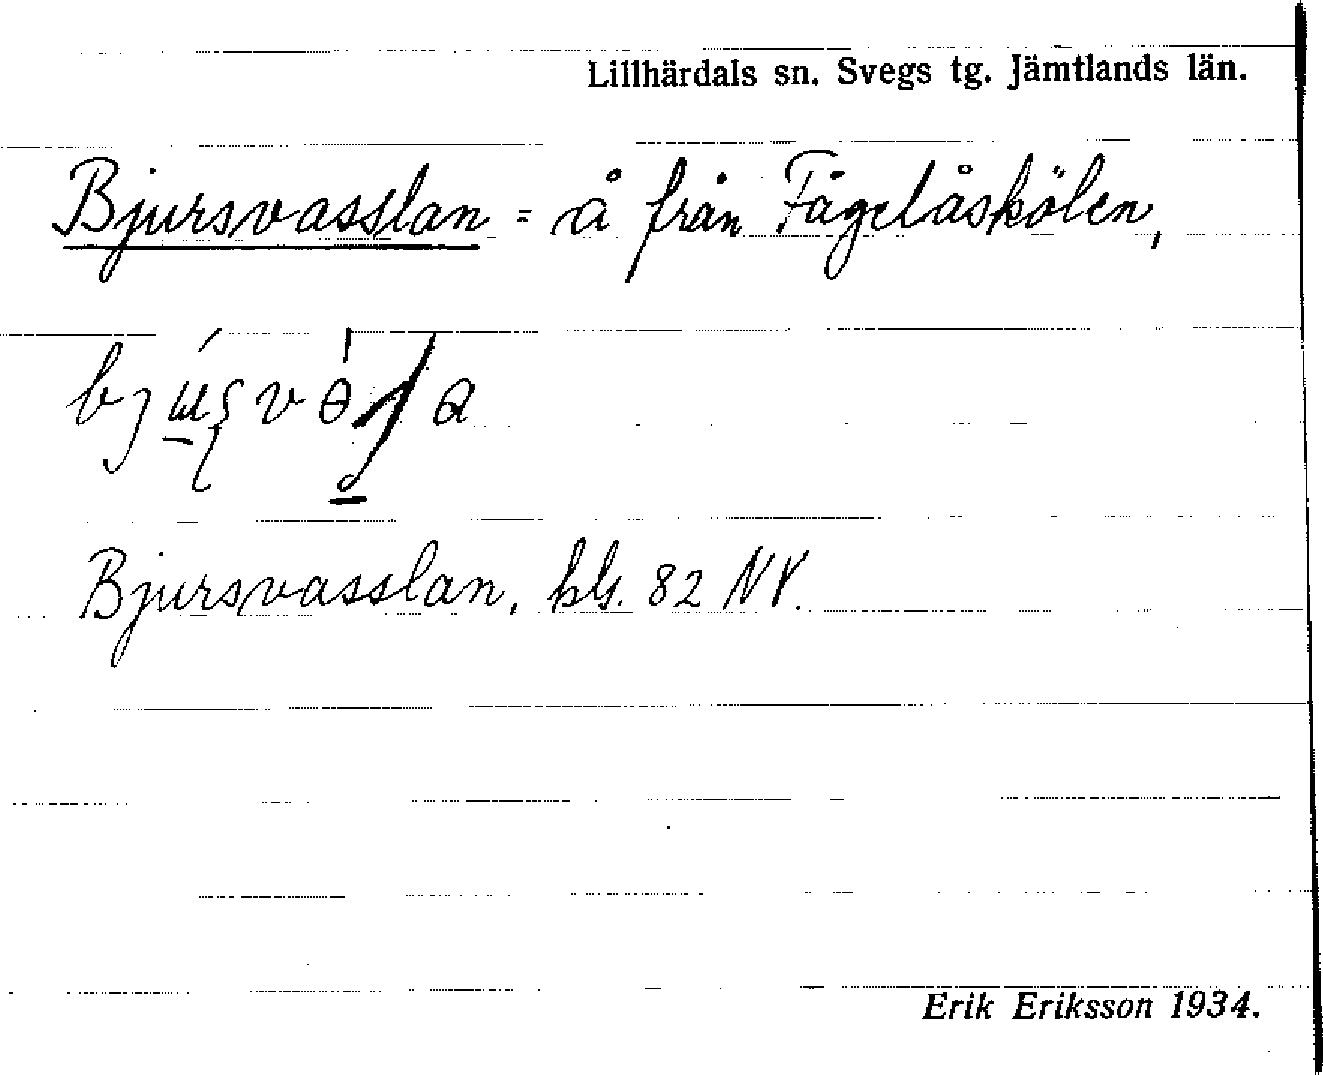 Lillhärdals sn. Svegs tg. Jämtlands län.
Bjursvasslan = å från Fågelåskölen,
Bjursvasslan, kbl. 82 NV.
Erik Eriksson 1934.